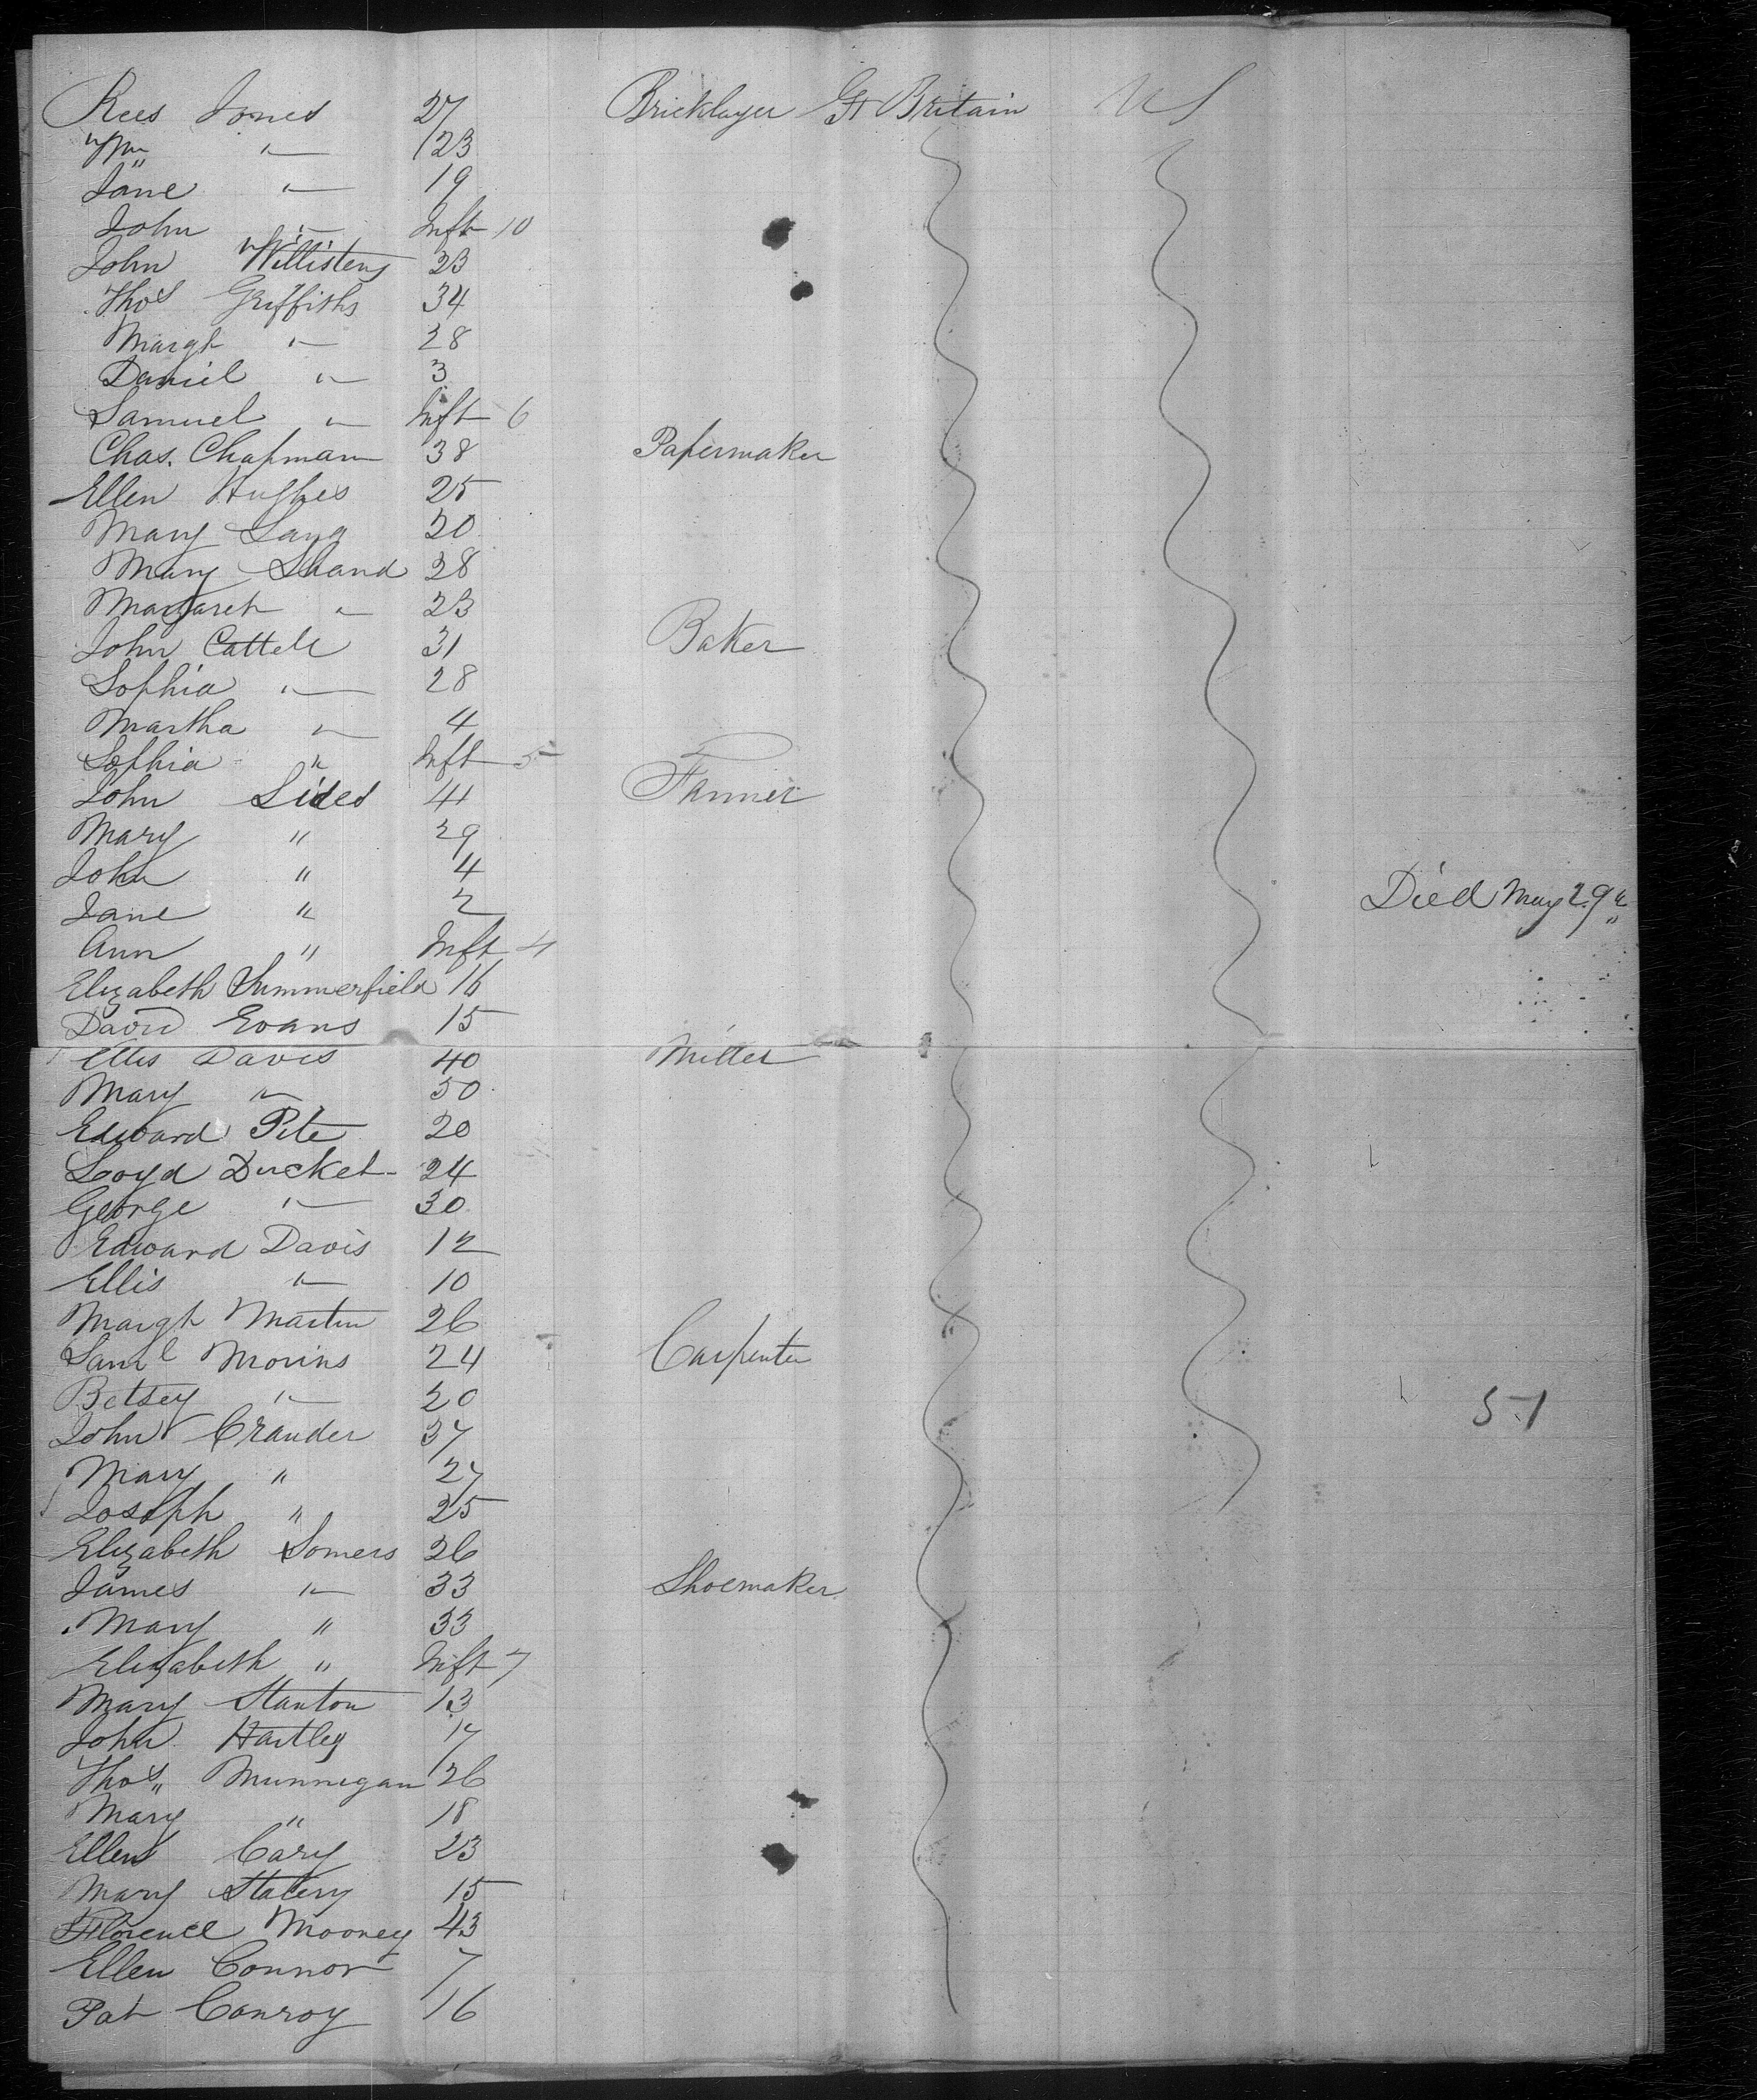 Rees Jones 27 Bricklayer Gt Britain US
Wm " 23
Jane " 19
John " Inft 10
John Willisteny 23
Thos Griffiths 34
Margt " 28
Daniel " 3
Samuel " Inft 6
Chas. Chapman 38 Papermaker
Ellen Hughes 25
Mary Lang 20
Mary Shand 28
Margaret " 23
John Cattell 31 Baker
Sophia " 28
Martha " 4
Sophia " Inft 5
John Sides 41 Farmer
Mary " 29
John " 4
Jane " 2 Died May 29th
Ann " Inft 4
Elizabeth Summerfield 16
David Evans 15
Ellis Davis 40 Miller
Mary " 50
Edward Pite 20
Loyd Ducket 24
George " 30
Edward Davis 12
Ellis " 10
Margt Martin 26
Saml Morins 24 Carpenter
Betsey " 20 51
John Crauder 37
Mary " 27
Joseph " 25
Elizabeth Somers 26
James " 33 Shoemaker
Mary " 33
Elizabeth " Inft 7
Mary Stanton 13
John Hartley 17
Thos Munnegan 26
Mary " 18
Ellen Cary 23
Mary 15
Florence Mooney 43
Ellen Connor 7
Pat Conroy 16